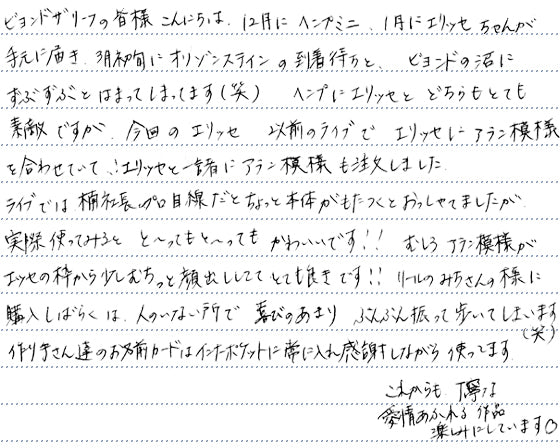 ビヨンドザリーフの皆様 こんにちは、12月に ヘンプミニ、1月にエリッセ ちゃんが
手元に届き、3月初旬に オリゾンスティン の到着待ちと、 ビヨンドの沼に
ずぶずぶとはまってしまってます(笑) ヘンプにエリッセと どちらもとても
素敵ですが、今回の エリッセ 以前のライブで エリッセに アラン模様
を合わせていて、エリッセと一緒に アラン模様 も注文しました
ライブでは 楠社長、プロ目線だとちょっと本体がもたつくとおっしゃてましたが
実際使ってみると と〜ってもと〜っても かわいいです!! むしろ アラン模様が
エッセの枠から少しむちっと顔出ししてて とても良きです!! リールのみちさんの様に
購入しばらくは、人のいない所で 喜びのあまり ぶんぶん振って歩いてしまいます
(笑)
作り手さん達のお名前カードはインナーポケットに常に入れ感謝しながら 使ってます
これからも 丁寧な
愛情あふれる 作品
楽しみにしています○